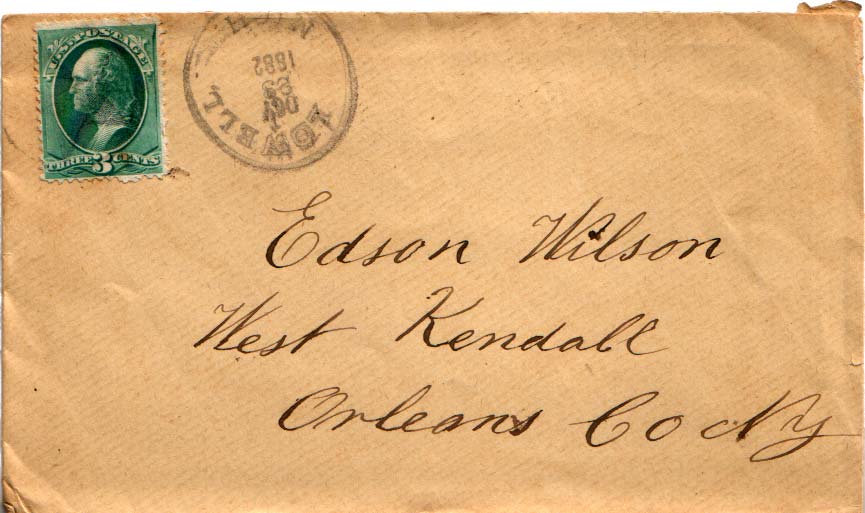 U.S. POSTAGE
THREE 3 CENTS
LOWELL
OCT
23
1882
Edson Wilson
West Kendall
Orleans Co NY